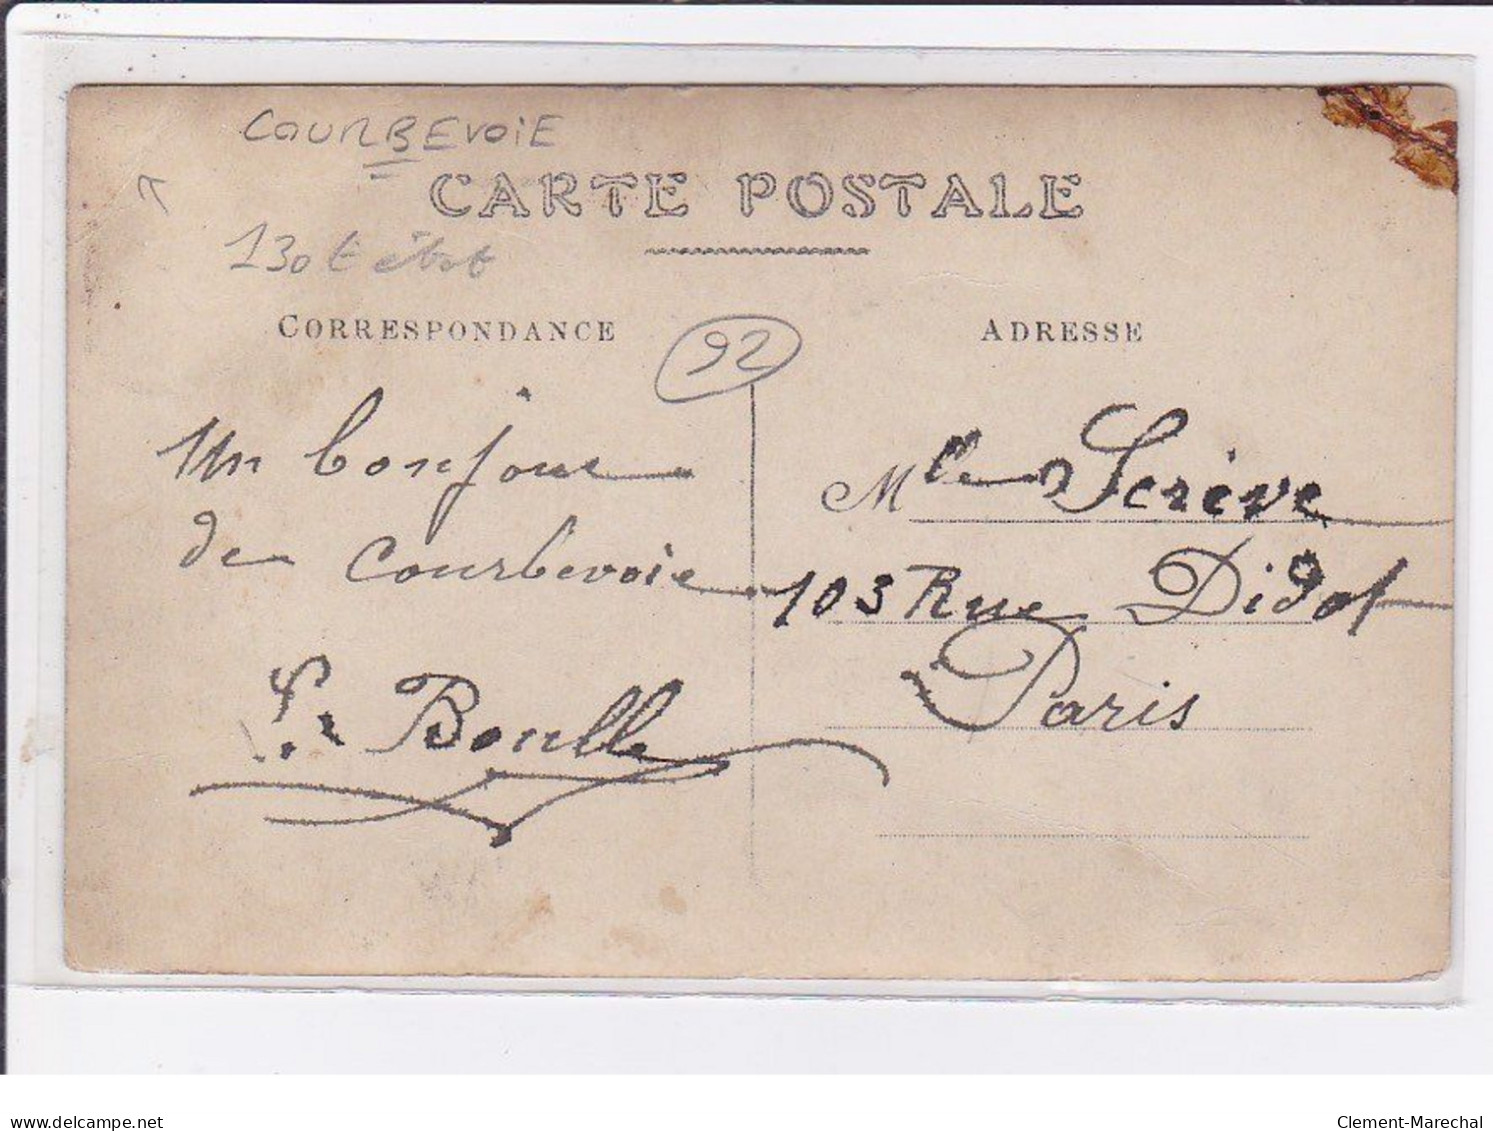 COURBEVOIE
CARTE POSTALE
130t état
CORRESPONDANCE
92
ADRESSE
Un bonjour
de Courbevoie
Boulle
Mlle Screve
103 Rue Didot
Paris
delcampe.net
Clement-Marechal